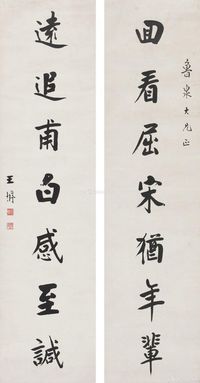 魯泉大兄正
回看屈宋猶年輩
遠追甫白感至諴
王